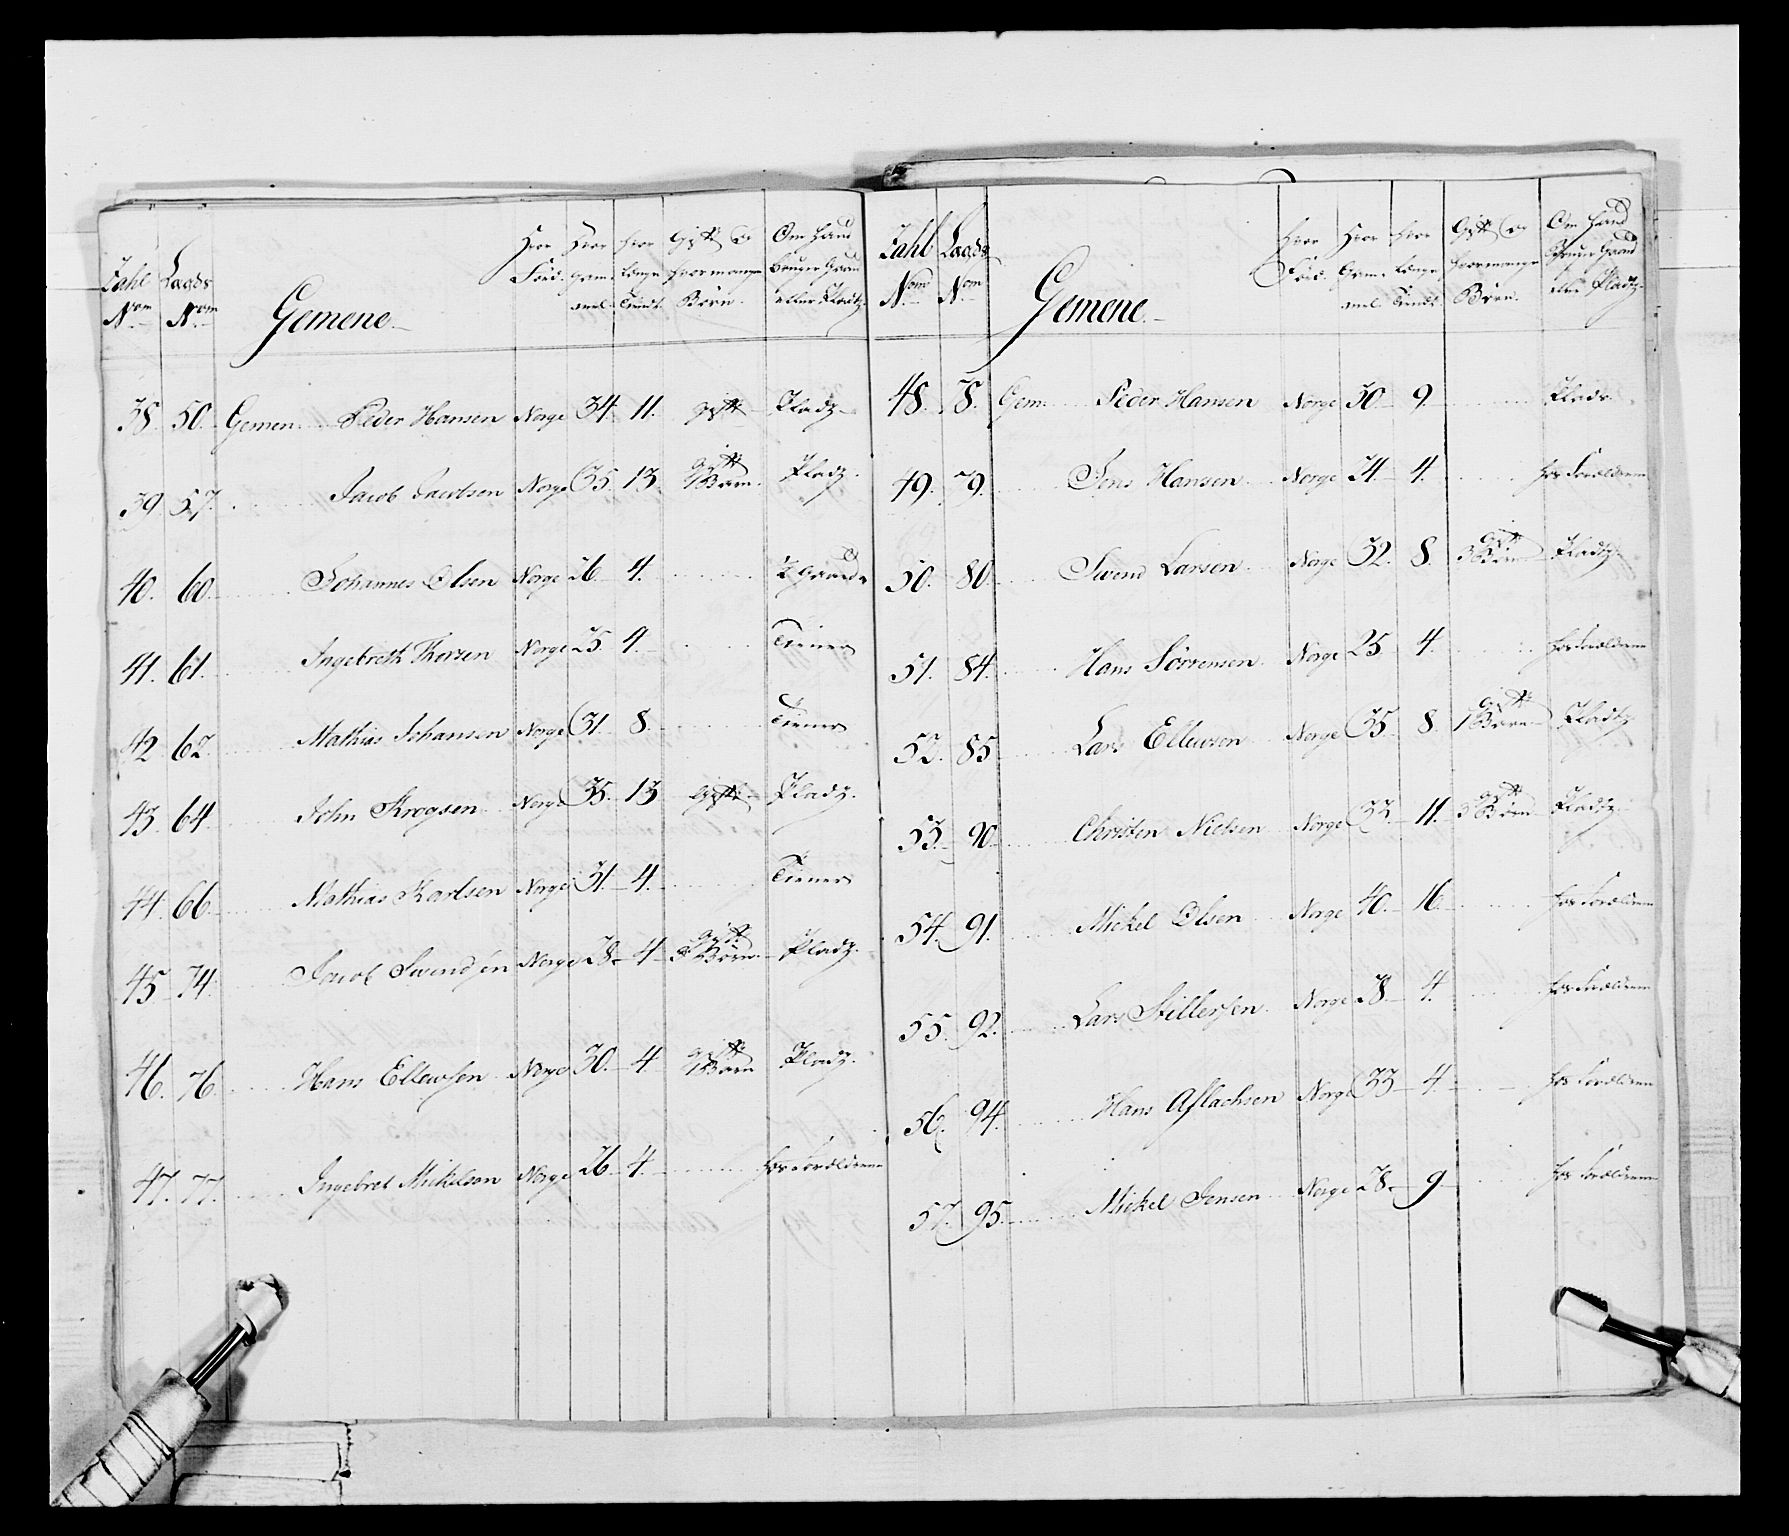 Tahl Nom Lagds Nom Gemene Hvor Föd. Hvor gam- mel Hvor længe tient Gift og hvor mange Börn. Om hand bruger Gaard eller Pladtz
38. 50. Gemen Peder Hansen Norge 34 11. gift Pladz
39 57. Jacob Jacobsen Norge 35. 13. gift 1 Barn. Pladz.
40. 60. Johannes Olsen Norge 26 4. 1/2 Gaard
41. 61. Ingebreth Thorsen Norge 25. 4. Tiener
42 62. Mathias Johansen Norge 31. 8. Tiener
43. 64. John Krogsen Norge 35. 13 gift Pladz.
44. 66. Mathias Karlsen Norge 31. 4. Tiener
45 74. Jacob Swendsen Norge 28. 4 gift 3 Börn. Pladz.
46. 76. Hans Ellewsen Norge 30. 4 gift 1 Barn Pladz.
47. 77. Ingebret Mickelsen Norge 26 4. hos Forældrene
Tahl Nom Lagds Nom Gemene Hvor Föd. Hvor Gam- mel Hvor længe tient Gift og hvor mange Börn. Om Hand Bruger Gaard eller Pladtz.
48. 78. Gem. Peder Hansen Norge 30 9. Pladz.
49. 79. Jens Hansen Norge 24 4. hos Forældrene
50. 80. Swend Larsen Norge 32. 8. gift 3 Börn Pladtz
51. 84. Hans Sörrensen Norge 25 4. hos Forældrene
52. 85 Lars Ellewsen Norge 35. 8. gift 1 Barn Pladtz
53. 90. Christen Nielsen Norge 33. 11. gift 3 Börn Pladtz
54. 91. Mickel Olsen Norge 40. 16. hos Forældrene
55. 92. Lars Norge 28. 4. hos Forældrene
56. 94. Hans Aslachsen Norge 33 4. hos Forældrene
57. 95. Mickel Jensen Norge 28. 9. hos Forældrene